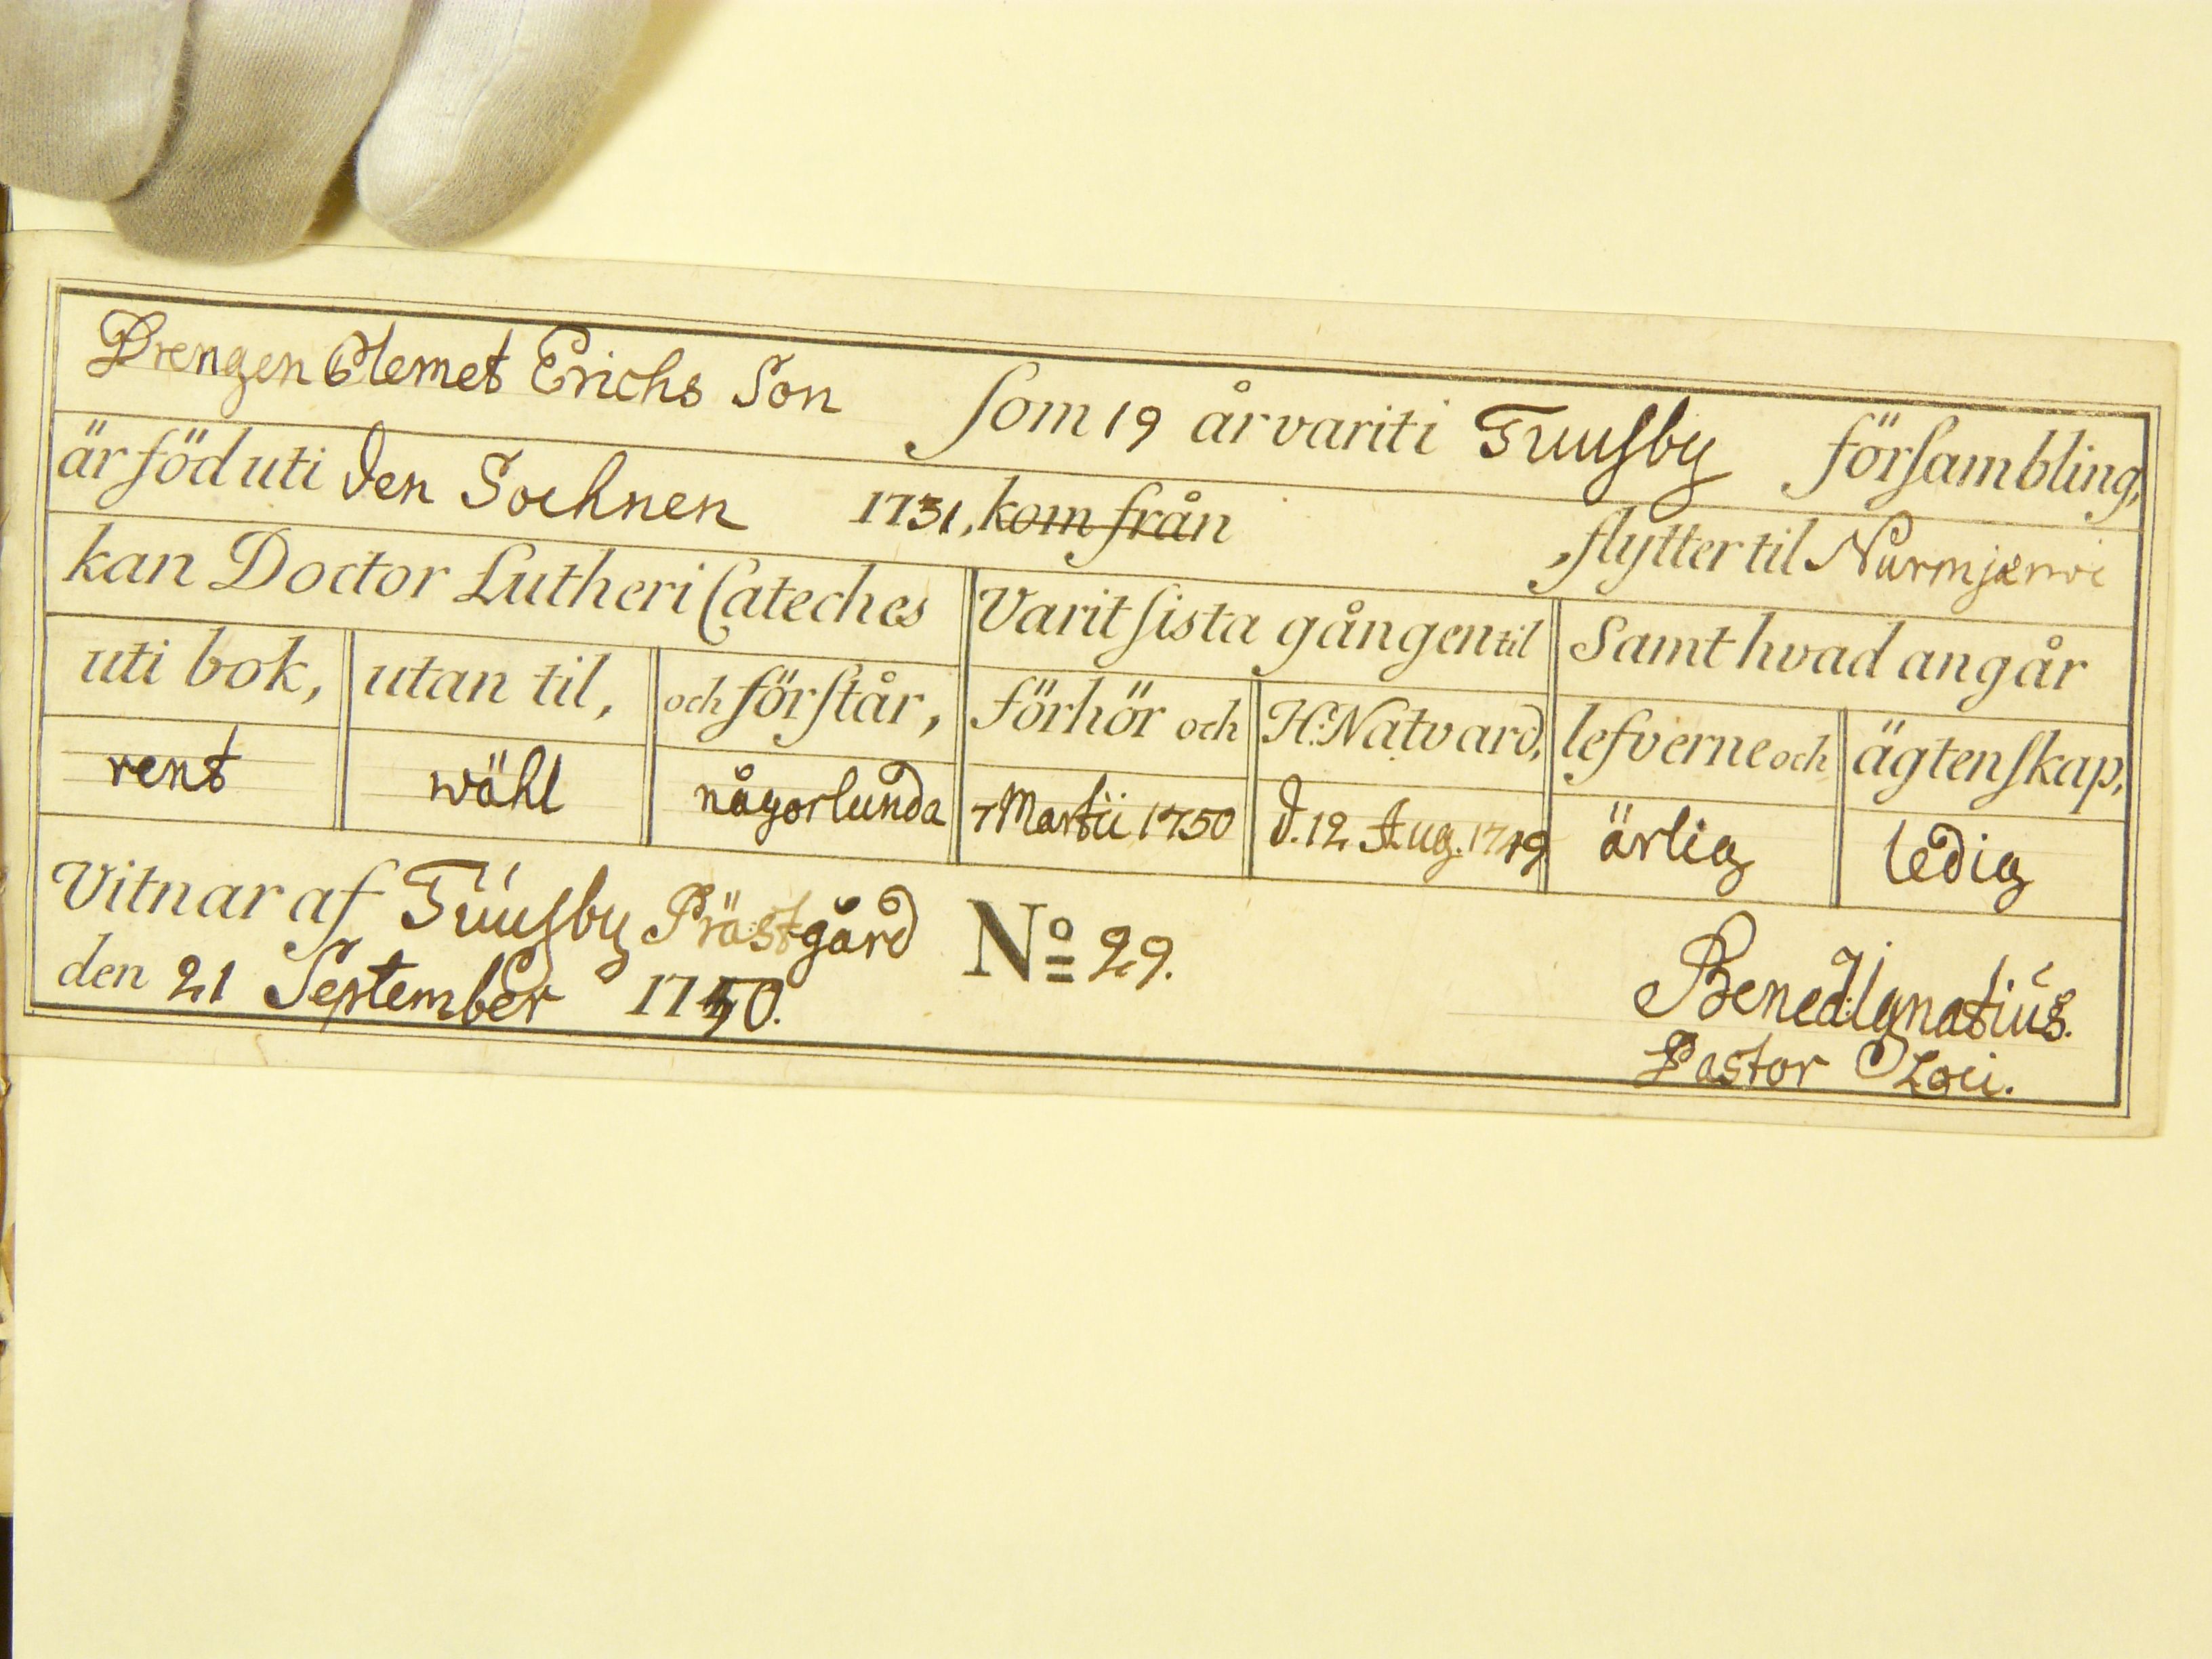 Drengen Clemet Erichs Son som 19 år varit i Tuusby försambling,
är föd uti den Sochnen 1731, kom från , flytter til Nurmjærwi
kan Doctor Lutheri Cateches Varit sista gången til Samt hvad angår
uti bok, utan til, och förstår, förhör och H. Natvard, lefverne och ägtenskap,
rent wähl någorlunda 7 Martii 1750 d. 12 Aug. 1749 ärlig ledig
Vitnar af Tuusby Prästgård No 29.
den 21 September 1750. Bened: Ignatius.
Pastor Loci.